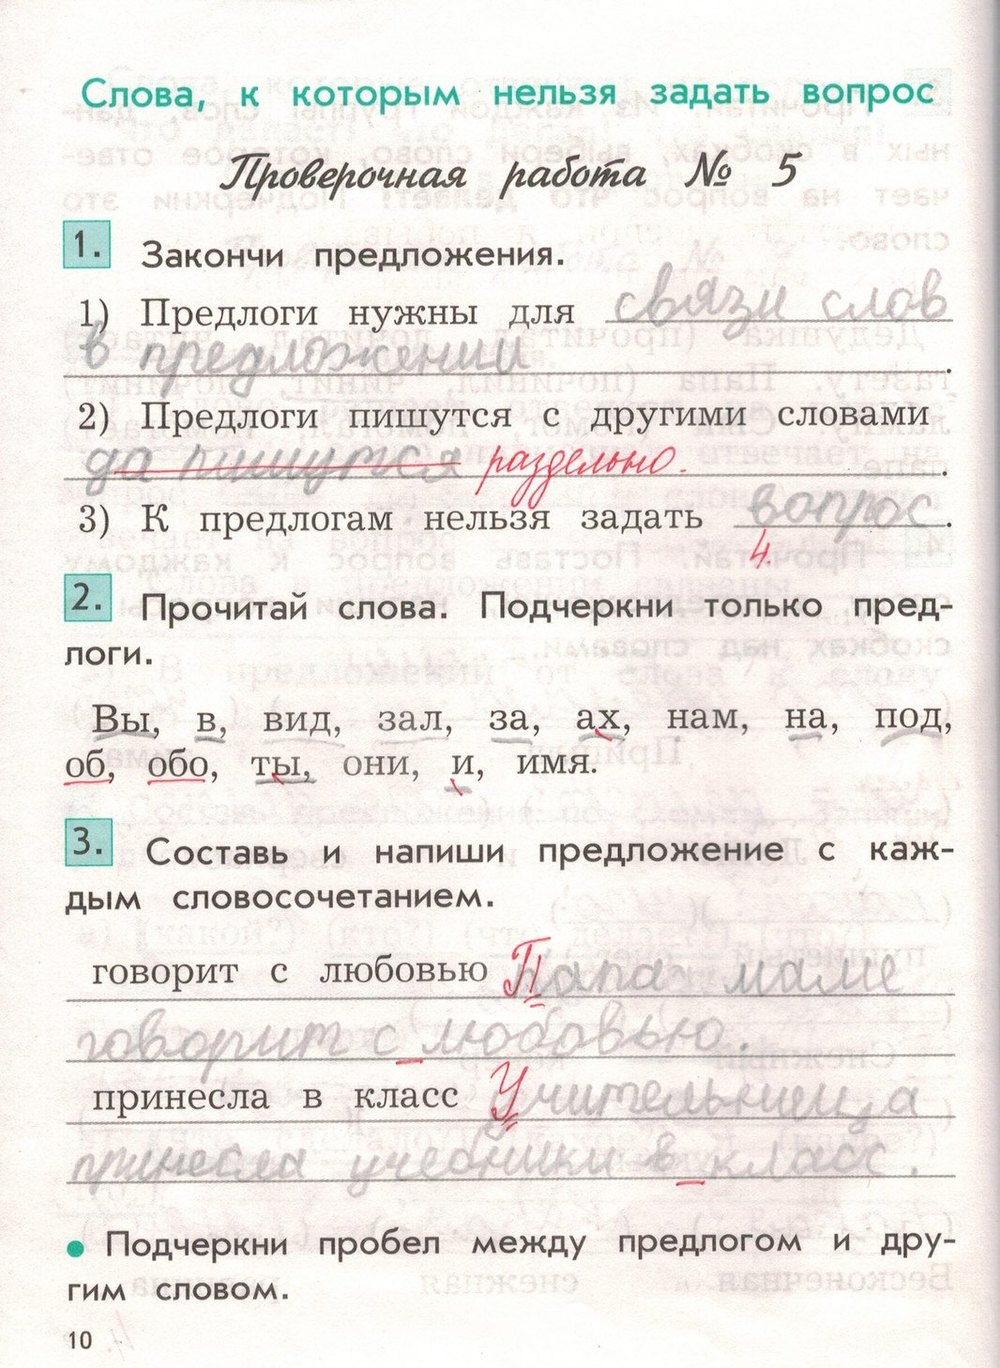 Слова, к которым нельзя задать вопрос
Проверочная работа № 5
1. Закончи предложения.
1) Предлоги нужны для связи слов
в предложении.
2) Предлоги пишутся с другими словами
да пишутся раздельно.
3) К предлогам нельзя задать вопрос.
4.
2. Прочитай слова. Подчеркни только пред-
логи.
Вы, в, вид, зал, за, ах, нам, на, под,
об, обо, ты, они, и, имя.
3. Составь и напиши предложение с каж-
дым словосочетанием.
говорит с любовью Папа маме
говорит с любовью.
принесла в класс Учительница
принесла учебники в класс.
Подчеркни пробел между предлогом и дру-
гим словом.
10